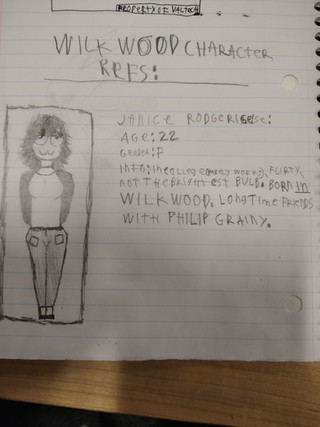 PROPERTY OF VALTECH
WILKWOOD CHARACTER
REFS:
JANICE RODGERIGESE:
AGE: 22
GENDER: F
INFO: FLIRTY,
NOT THE BRIGHTEST BULB. BORN IN
WILKWOOD. LONG TIME FRIENDS
WITH PHILIP GRAINY.